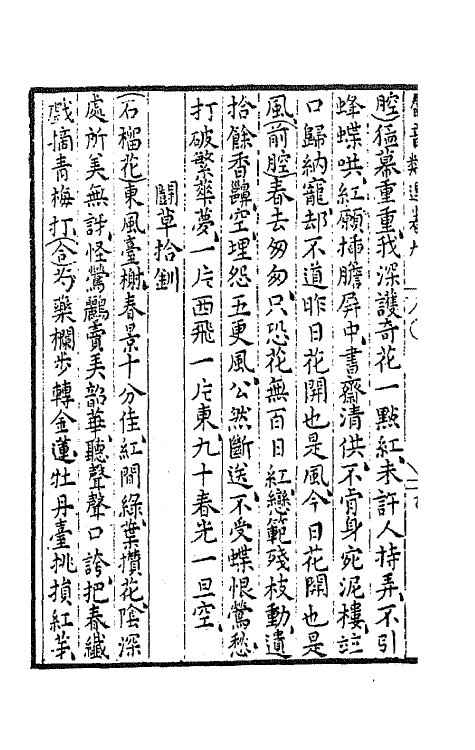 腔）猛幕重重我深護奇花一點紅未許人持弄不引
蜂蝶哄紅願揷膽屏中書齋清供不肯身宛泥樓竝
口歸納寵却不道昨日花開也是風今日花開也是
風（前腔）春去匆匆只恐花無百日紅戀範殘枝動遺
拾餘香齅空埋怨五更風公然斷送不受蝶恨鶯愁
打破繁華夢一片西飛一片東九十春光一旦空
鬭草拾釧
（石榴花）東風臺榭春景十分佳紅間綠葉攢花陰深
處所美無訝怪鶯鸝賣美韶華聽聲聲口誇把春纖
戲摘青梅打（合）芍藥欄步轉金蓮牡丹臺挑損紅芽